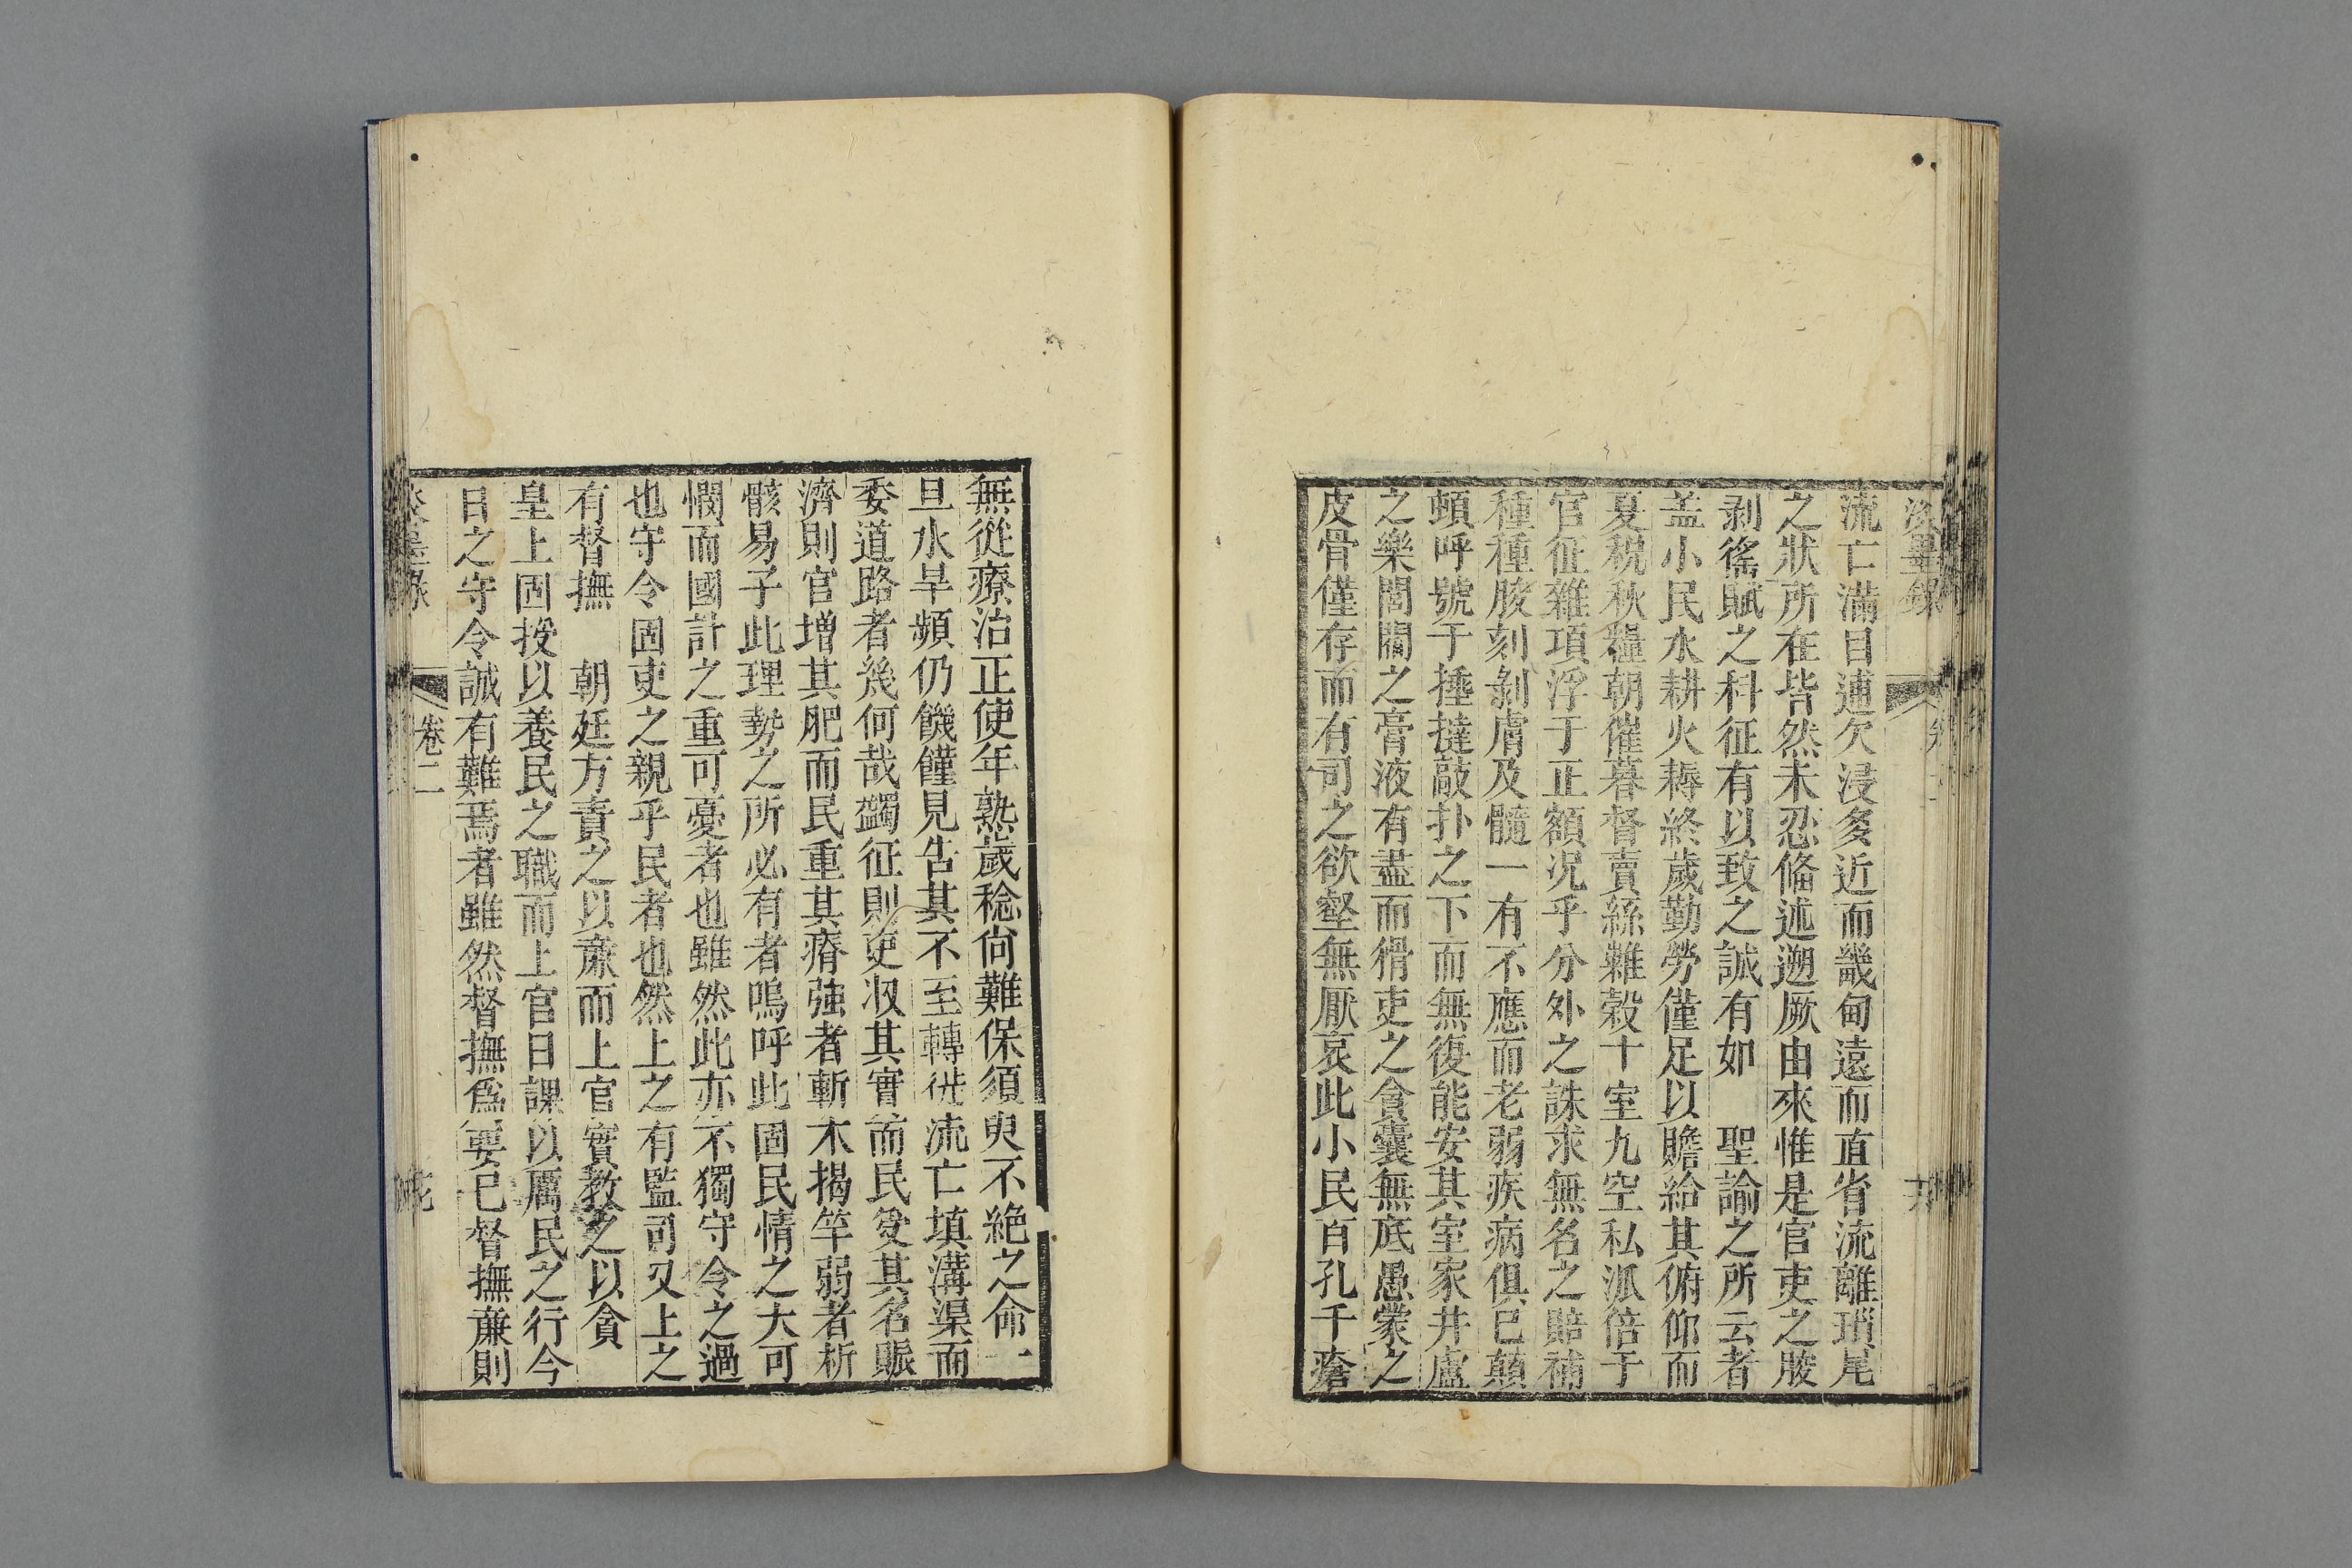 流亡滿目逋欠浸多近而畿甸遠而直省流離瑣尾
之狀所在皆然未忍備述遡厥由來惟是官吏之朘
剥徭賦之科征有以致之誠有如　聖諭之所云者
盖小民水耕火耨終歲勤勞僅足以贍給其俯仰而
夏稅秋糧朝催暮督賣絲糶穀十室九空私派倍于
官征雜項浮于正額況乎分外之誅求無名之賠補
種種朘刻剝膚及髓一有不應而老弱疾病俱已顛
頓呼號于捶撻敲扑之下而無復能安其室家井廬
之樂閭閻之膏液有盡而猾吏之貪囊無底愚蒙之
皮骨僅存而有司之欲壑無厭哀此小民百孔千瘡
無從療治正使年熟歲稔尚難保須臾不絶之命一
旦水旱頻仍饑饉見告其不至轉徙流亡填溝渠而
委道路者幾何哉蠲征則吏収其實而民受其名賑
濟則官增其肥而民重其瘠強者斬木揭竿弱者析
骸易子此理勢之所必有者嗚呼此固民情之大可
憫而國計之重可憂者也雖然此亦不獨守令之過
也守令固吏之親乎民者也然上之有監司又上之
有督撫　朝廷方責之以亷而上官實教之以貪
皇上固授以養民之職而上官日課以厲民之行今
日之守令誠有難焉者雖然督撫爲要已督撫亷則
卷二